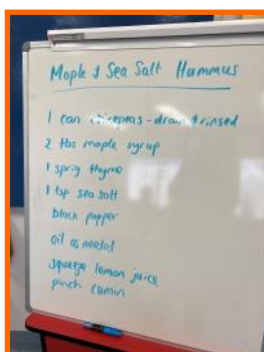 Maple & Sea Salt Hummus
1 can chickpeas - drain & rinsed
2 tbs maple syrup
1 sprig thyme
1 tsp sea salt
black pepper
oil as needed
squeeze lemon juice
pinch cumin